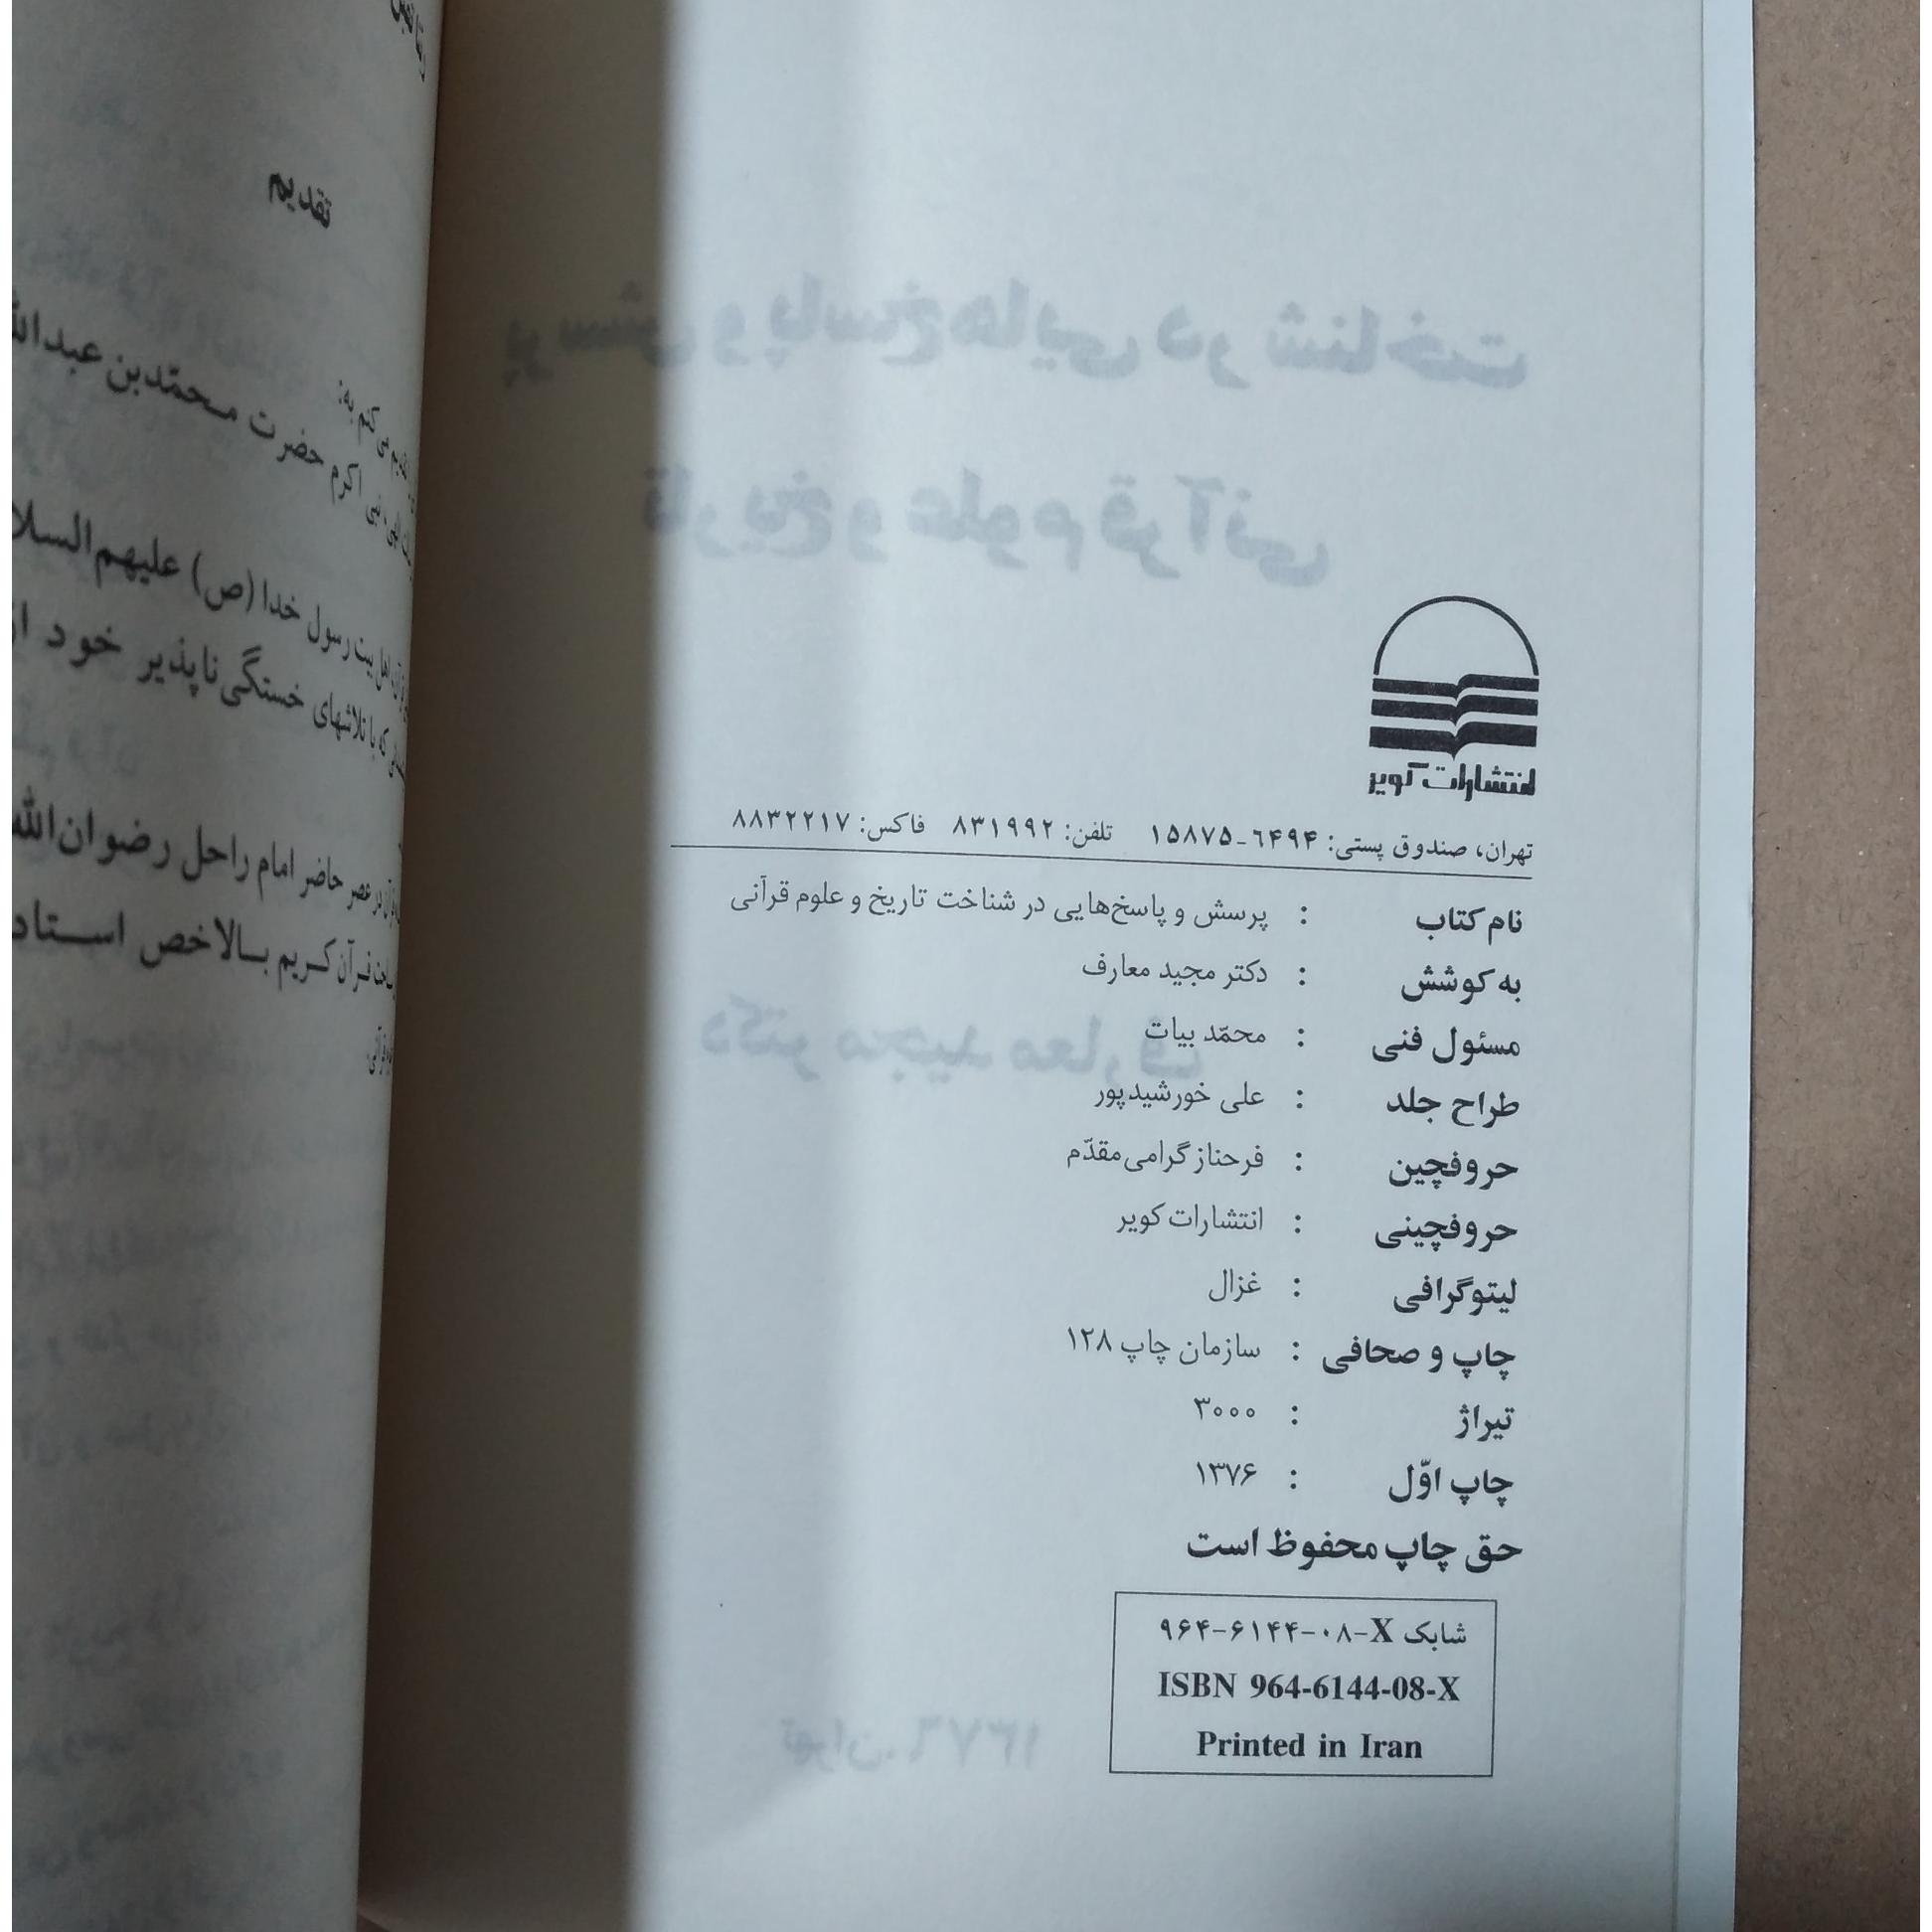 انتشارات کویر
تهران، صندوق پستی: ۶۴۹۴-۱۵۸۷۵ تلفن: ۸۳۱۹۹۲ فاکس: ۸۸۳۲۲۱۷
نام کتاب : پرسش و پاسخ‌هایی در شناخت تاریخ و علوم قرآنی
به کوشش : دکتر مجید معارف
مسئول فنی : محمّد بیات
طراح جلد : علی خورشیدپور
حروفچین : فرحناز گرامی‌مقدّم
حروفچینی : انتشارات کویر
لیتوگرافی : غزال
چاپ و صحافی : سازمان چاپ ۱۲۸
تیراژ : ۳۰۰۰
چاپ اوّل : ۱۳۷۶
حق چاپ محفوظ است
شابک ۹۶۴-۶۱۴۴-۰۸-X
ISBN 964-6144-08-X
Printed in Iran
تقدیم
می‌کنم به:
نبی اکرم حضرت محمّدبن عبدالله
اهل بیت رسول خدا (ص) علیهم‌السلا
که با تلاشهای خستگی‌ناپذیر خود از
در عصر حاضر امام راحل رضوان‌الله
قرآن کریم بالاخص استاد